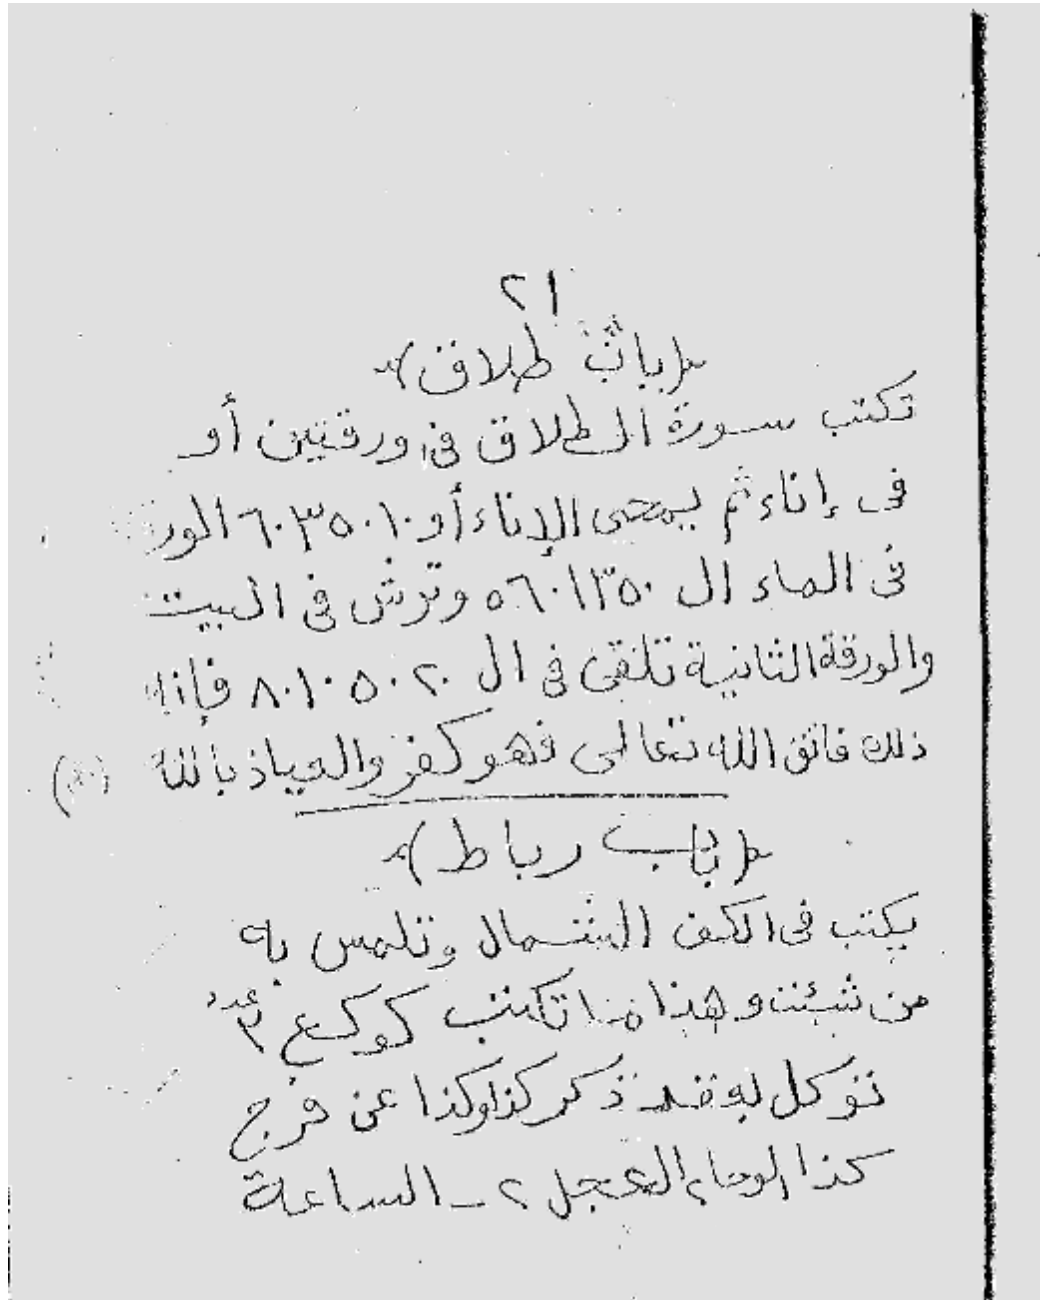 ٢١
﴿باب طلاق﴾
تكتب سورة الطلاق فى ورقتين أو
فى إناء ثم يمحى الإناء أو ٦٠٣٥٠١٠ الور
فى الماء ال ٥٦٠١٣٥٠ وترش فى البيت
والورقة الثانية تلقى فى ال ٨٠١٠٥٠٢٠ فإذا
ذلك فاتق الله تعالى فهو كفر والعياذ بالله
﴿باب رباط﴾
يكتب فى الكف الشمال وتلمس به
من شئت وهذا ما تكتب كوكع ٣ عدد
توكل ذكر كذا وكذا عن فرج
كذا الوحا ٢ العجل ٢ - الساعة